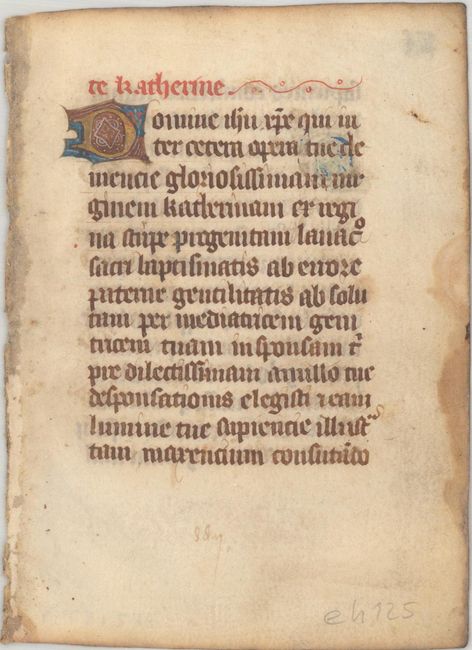 te katherine
Domine ihu xpe qui in
ter cetera opera tue cle
mencie gloriosissimam vir
ginem katherinam ex regi
na stirpe progenitam lauac°
sacri baptismatis ab errore
paterne gentilitatis ab solu
tam per mediatricem geni
tricem tuam in sponsam t'
pre dilectissimam anullo tue
desponsationis elegisti et eam
lumine tue sapiencie illust
tam maxencium confutando
eh 125